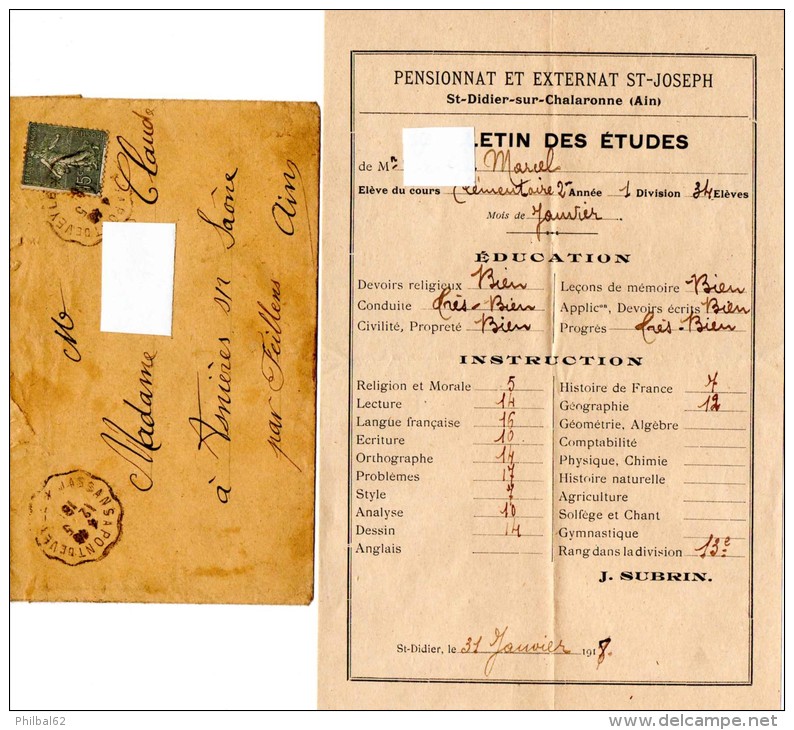 M
Claude
Madame
à Asnières sr Saône
par Feillens
Ain
PENSIONNAT ET EXTERNAT ST-JOSEPH
St-Didier-sur-Chalaronne (Ain)
LETIN DES ÉTUDES
de Mr Marcel
Elève du cours Elémentaire 2e Année 1 Division 34 Elèves
Mois de Janvier
ÉDUCATION
Devoirs religieux Bien
Conduite Très-Bien
Civilité, Propreté Bien
Leçons de mémoire Bien
Applicon, Devoirs écrits Bien
Progrés Très-Bien
INSTRUCTION
Religion et Morale 5
Lecture 14
Langue française 16
Ecriture 10
Orthographe 14
Problèmes 17
Style 7
Analyse 10
Dessin 14
Anglais
Histoire de France 7
Géographie 12
Géométrie, Algèbre
Comptabilité
Physique, Chimie
Histoire naturelle
Agriculture
Solfège et Chant
Gymnastique
Rang dans la division 13e
J. SUBRIN.
St-Didier, le 31 Janvier 1918.
Philbal62
http://www.delcampe.net